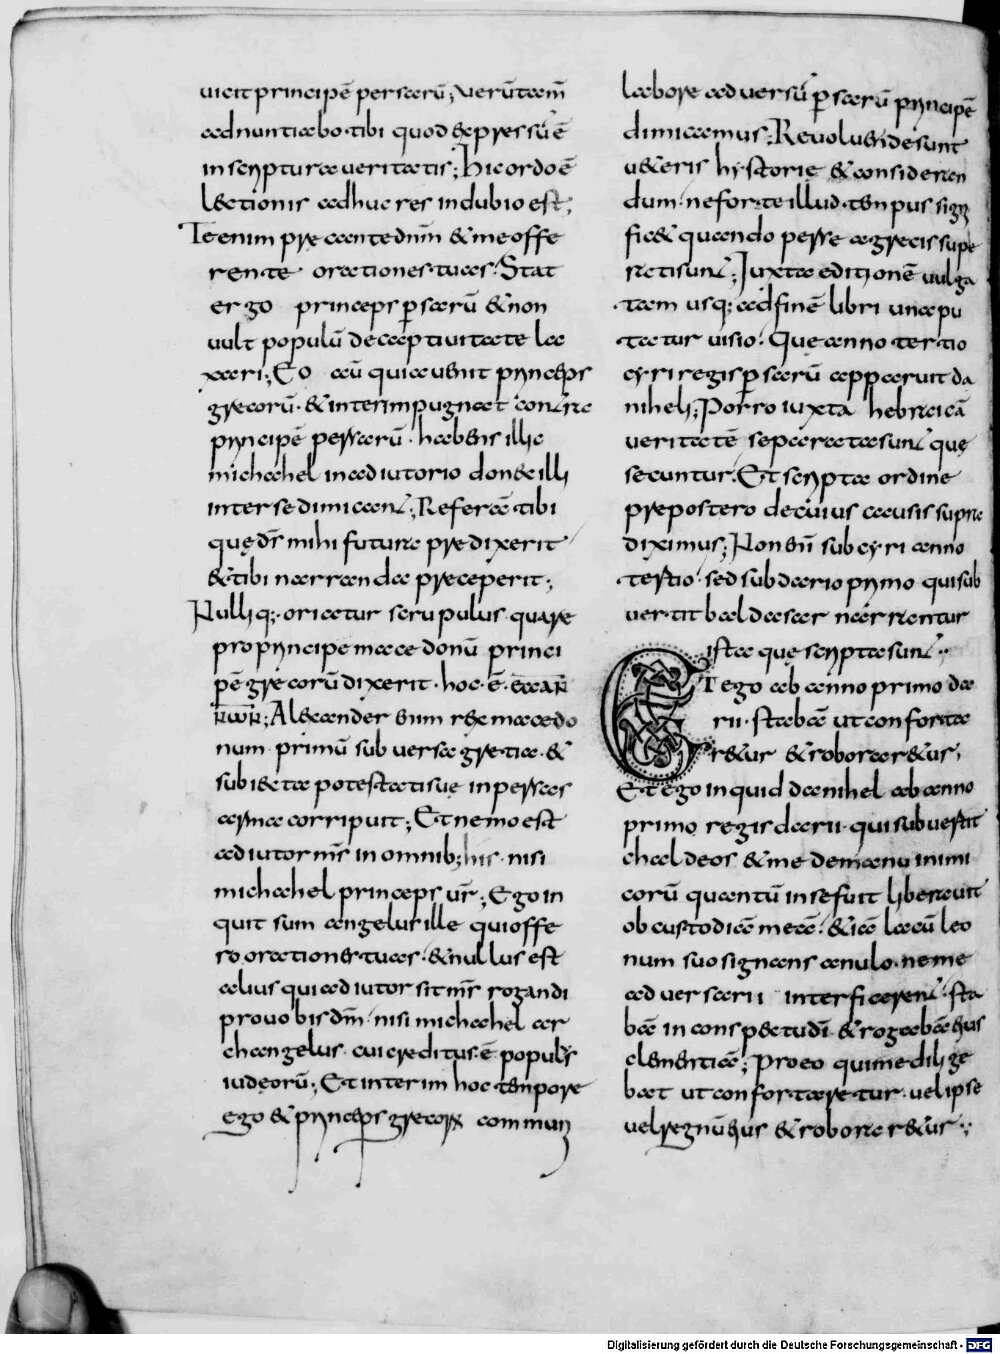 uicit principē persarū; Verūtam̄
adnuntiabo tibi quod expressū ē
in scriptura ueritatis; Hic ordo ē
lectionis adhuc res in dubio est;
Te enim precante dn̄m & me offe
rente orationes tuas. Stat
ergo princeps ꝑsarū & non
uult populū de captiuitate la
xari; Eo aū quia uenit princeps
grecorū & interim pugnat contra
principē persarū. habens illic
michahel in adiutorio donec illi
inter se dimicant; Referā tibi
quę ds̄ mihi futura predixerit
& tibi narranda preceperit;
Nulliq; oriatur scrupulus quare
pro principe macedonū princi
pē grecorū dixerit. hoc ē.
Alexander enim rex macedo
num primū subuersa gretia &
subiecta potestati suę in persas
arma corripuit; Et nemo est
adiutor mr̄ in omnib; his nisi
michahel princeps ur̄; Ego in
quit sum angelus ille qui offe
ro orationes tuas & nullus est
alius qui adiutor sit mr̄ rogandi
pro uobis dm̄ nisi michahel ar
changelus cui creditus ē populus
iudeorū; Et interim hoc tempore
ego & princeps grecorum communi
labore aduersū ꝑsarū principē
dimicamus; Reuoluendę sunt
ueteris hystorię & consideran
dum ne forte illud tempus signi
ficet quando persę a grecis supe
rati sunt; Juxta editionē uulga
tam usq; ad finē libri una pu
tatur uisio. Que anno tertio
cyri regis ꝑsarū apparuit da
niheli; Porro iuxta hebraicā
ueritatē separata sunt quę
secuntur. Et scripta ordine
prepostero de cuius causis supra
diximus; Non en̄ sub cyri anno
tertio sed sub dario primo qui sub
uertit baldasar narrantur
ista quę scripta sunt.
ET ego ab anno primo da
rii stabā ut confortа
retur & roboraretur;
Et ego inquid danihel ab anno
primo regis darii qui subuertit
chaldeos & me de manu inimi
corū quantū in se fuit liberauit
ob custodiā meā. & iā lacū leo
num suo signans anulo ne me
aduersarii interficerent sta
bā in conspectu dī & rogabā eius
clementiā; Pro eo qui me dilige
bat ut confortaretur uel ipse
uel regnū eius & roboraretur
Digitalisierung gefördert durch die Deutsche Forschungsgemeinschaft - DFG